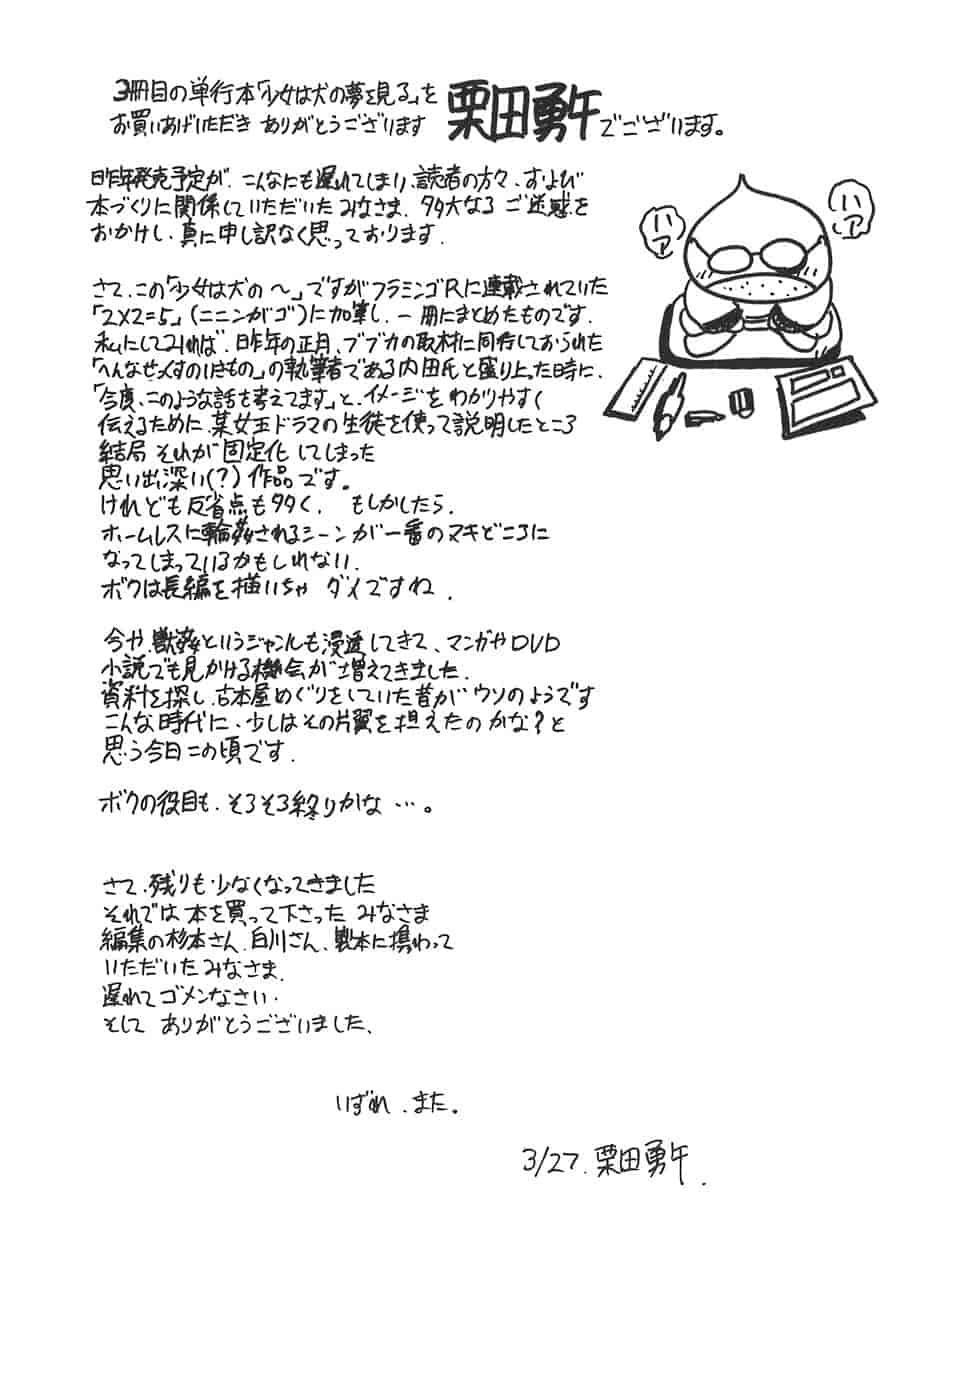 3冊目の単行本「少女は犬の夢を見る」を
お買いあげいただき ありがとうございます
栗田勇午でございます。
ハァ
ハァ
昨年発売予定が、こんなにも遅れてしまい、読者の方々、および
本づくりに関係していただいたみなさま、多大なる ご迷惑を
おかけし、真に申し訳なく思っております.
さて、この「少女は犬の〜」ですがフラミンゴRに連載されていた
「2×2=5」(ニニンがゴ)に加筆し、一冊にまとめたものです.
私にしてみれば、昨年の正月、ブブカの取材に同行しておられた
「へんなせっくすのいきもの」の執筆者である内田氏と盛り上った時に、
「今度、このような話を考えてます」と、イメージをわかりやすく
伝えるために、某女王ドラマの生徒を使って説明したところ
結局 それが固定化してしまった
思い出深い(?)作品です。
けれども反省点も多く、 もしかしたら、
ホームレスに輪姦されるシーンが一番のマキどころに
なってしまっているかもしれない.
ボクは長編を描いちゃ ダメですね.
今や、獣姦というジャンルも浸透してきて、マンガやDVD
小説でも見かける機会が増えてきました.
資料を探し、古本屋めぐりをしていた昔が ウソのようです
こんな時代に、少しはその片翼を担えたのかな?と
思う今日この頃です.
ボクの役目も、そろそろ終りかな …。
さて、残りも少なくなってきました
それでは 本を買って下さった みなさま
編集の杉本さん、白川さん、製本に携わって
いただいたみなさま、
遅れて ゴメンなさい.
そして ありがとうございました、
いずれ、また。
3/27. 栗田勇午.